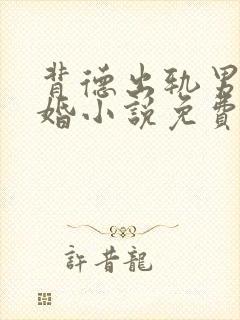 背德出轨男
婚小說免費
許昔龍